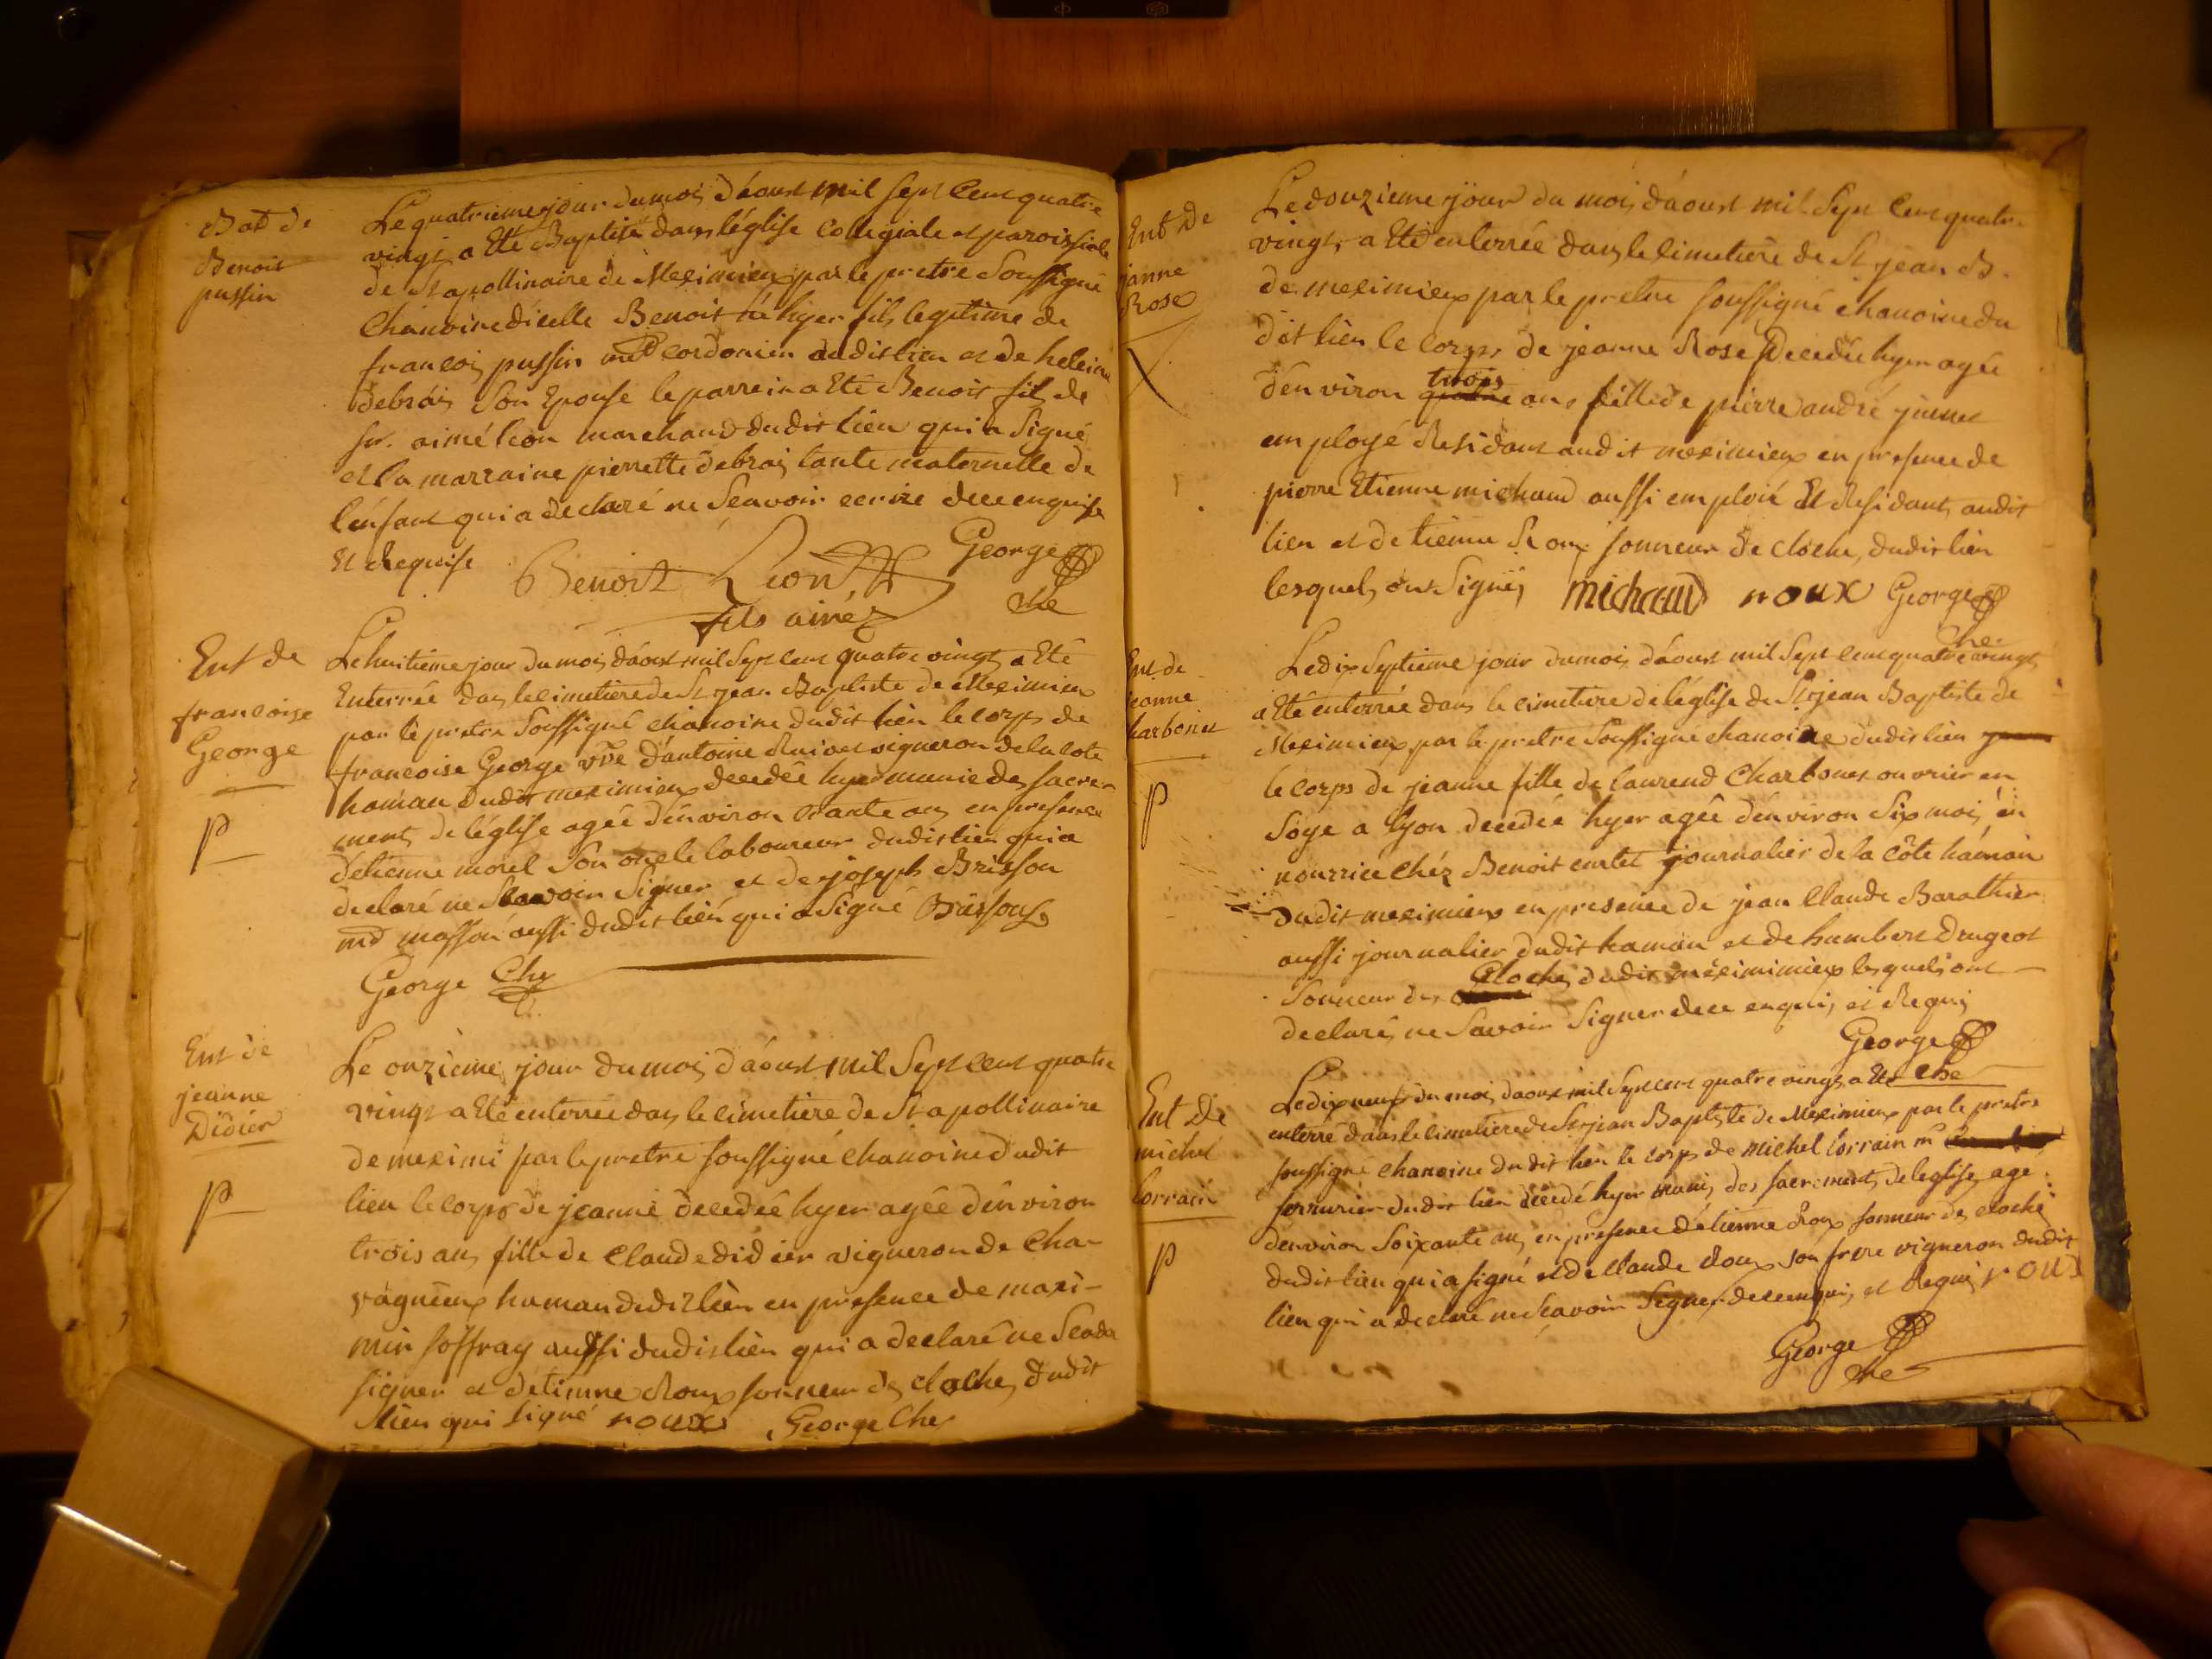 Bat de
Benoit
pussin
Le quatrieme jour du mois d'aoust mil sept cent quatre
vingt a Eté Baptisé dans l'églisse collegiale et paroissiale
de St apollinaire de Meximieux par le pretre Soussigné
Chanoine d'icelle Benoit né hyer fils legitime de
francois pussin md cordonier dudit lieu et de heleine
debrais Son Epouse le parrein a Eté Benoit fils de
Sr. aimé leon marchand dudit lieu qui a Signé
et la marraine pierrette debrais tante maternelle de
l'enfant qui a declaré ne Scavoir ecrire dece enquise
Et Requise Benoist Leon George
fils ainé che
Ent de
francoise
George
p
Le huitieme jour du mois d'aoust mil Sept cent quatre vingt a Eté
Enterrée dans le cimetiere de St jean Baptiste de Meximieu
par le pretre Soussigné chanoine dudit lieu le corps de
francoise George vve d'antoine vigneron de la cote
haman dudit meximieux decedée hyer munie des sacre-
ments de l'églisse agée d'environ ans en presence
detienne morel Son oncle laboureur dudit lieu qui a
declaré ne Scavoir Signer et de joseph Brisson
md masson aussi dudit lieu qui a Signé Brisson
George Che
Ent de
jeanne
Didier
p
Le onzieme jour du mois d'aoust mil Sept cent quatre
vingt a Eté enterrée dans le cimetiere de St apollinaire
de meximi par le pretre soussigné chanoine dudit
lieu le corps de jeanne decedée hyer agée d'environ
trois ans fille de Claude didier vigneron de Cha-
vagneux haman dudit lieu en presence de maxi-
min soffray aussi dudit lieu qui a declaré ne Scavoir
signer et d'etienne Roux sonneur des cloches dudit
lieu qui signé roux George Che
Ent de
janne
Rose
Le douzieme jour du mois d'aoust mil Sept cent quatre
vingt a Eté enterrée dans le cimetiere de St jean B.
de meximieux par le pretre soussigné chanoine du
dit lieu le corps de jeanne Rose Decedée hyer agée
d'environ trois ans fille de pierre andré
employé Residant audit meximieux en presence de
pierre Etienne michaud aussi emploié Et Residant audit
lieu et de tienne Roux sonneur de cloche dudit lieu
lesquels ont Signés michaud roux George
che
Ent de
jeanne
harbonet
p
Le dix Septieme jour du mois d'aoust mil Sept cent quatre vingt
a Eté enterrée dans le cimetiere de l'églisse de St jean Baptiste de
Meximieux par le pretre Soussigné chanoine dudit lieu
le corps de jeanne fille de laurend Charbonet ouvrier en
Soye a lyon decedée hyer agée d'environ Six mois en
nourrice chéz Benoit curtet journalier de la côte haman
dudit meximieux en presence de jean Claude Barathier
aussi journalier dudit haman et de humbert drugeot
Sonneur des Cloches dudit meximimieux lesquels ont
declarés ne Savoir Signer dece enquis et Requis
George
che
Ent de
michel
lorrain
p
Le dix neuf du mois d'aoust mil Sept cent quatre vingt a Eté
enterré dans le cimetiere de St jean Baptiste de Meximieux par le pretre
soussigné chanoine dudit lieu le corps de michel lorrain md
serrurier dudit lieu decedé hyer munis des sacrements de l'eglisse agé
d'environ Soixante ans en presence d'etienne Roux sonneur des cloches
dudit lieu qui a signé et de Claude Roux son frere vigneron dudit
lieu qui a declaré ne Scavoir Signer dece enquis et Requis roux
George
che